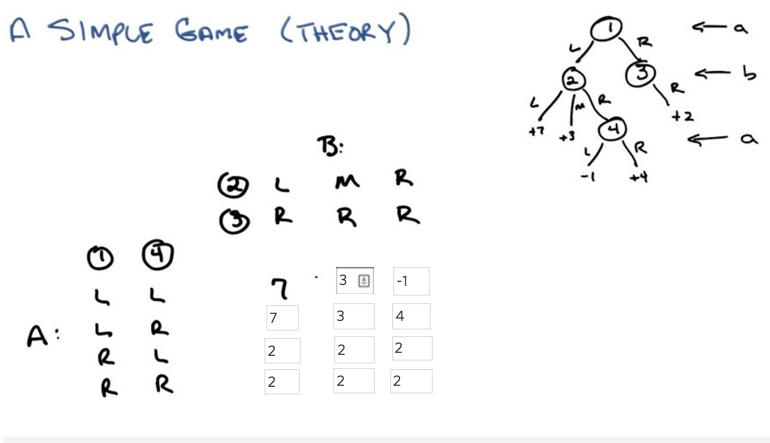 A SIMPLE GAME (THEORY)
1 ← a
L R
2 3 ← b
L M R R
+7 +3 4 +2 ← a
L R
-1 +4
B:
2 L M R
3 R R R
1 4
L L 7 3 -1
A: L R 7 3 4
R L 2 2 2
R R 2 2 2